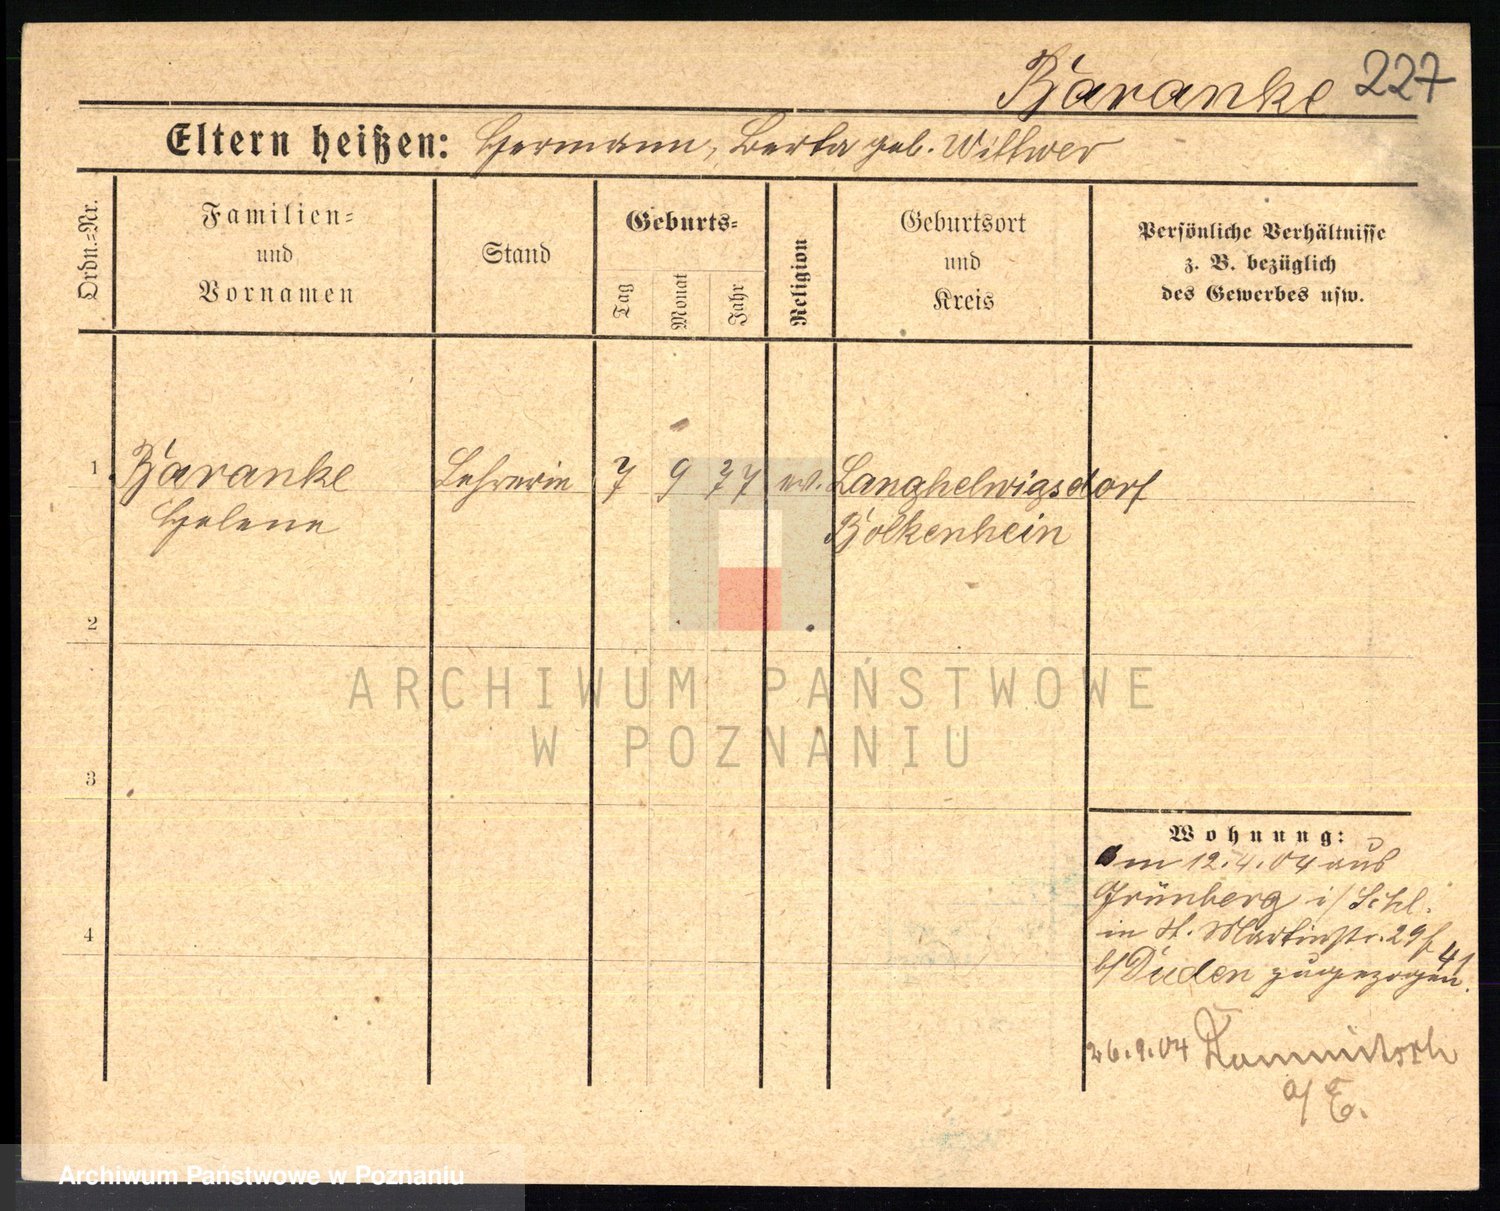 Baranke 227
Eltern heißen: Hermann, Berta geb. Wittwer
Ordn.=Nr.
Familien=
und
Vornamen
Stand
Geburts=
Tag
Monat
Jahr
Religion
Geburtsort
und
Kreis
Persönliche Verhältnisse
z. B. bezüglich
des Gewerbes usw.
1 Baranke Lehrerin 7 9 77 ev. Langhelwigsdorf
Helene Bolkenhein
2
ARCHIWUM PAŃSTWOWE
W POZNANIU
3
Wohnung:
am 12.4.04 aus
Grünberg i/Schl.
4
in St. Martinstr. 29
b/ Duden zugezogen.
26.9.04
Archiwum Państwowe w Poznaniu